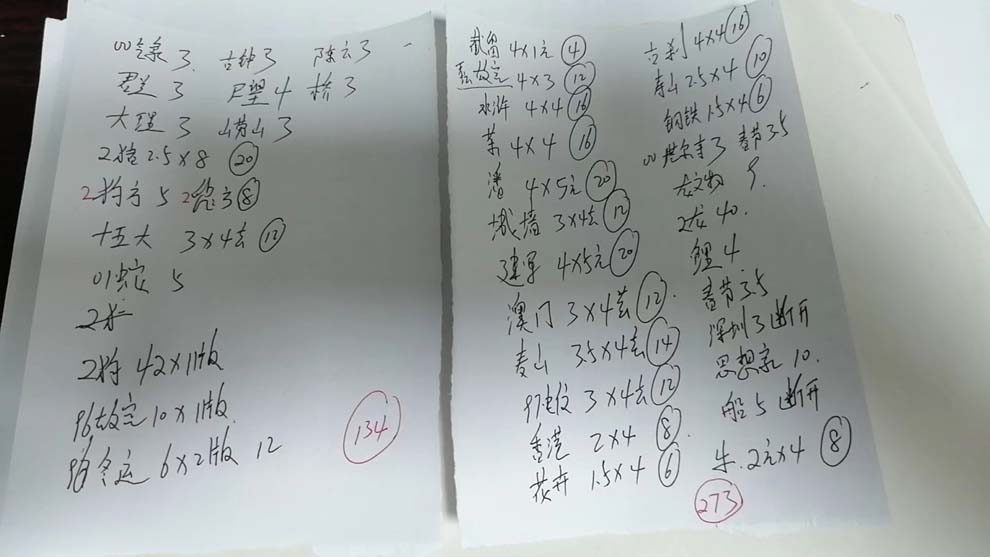 00 3 古钟3 陈云3
3 巨望4 桥3
大理 3 崂山3
2猪2.5×8 20
2狗方 5 2 方 8
十五大 3×4套 12
01蛇 5
2狗 42×1版
96故宫10×1版
96冬运 6×2版 12
134
4×1元 4
故宫 4×3 12
水浒 4×4 16
茶 4×4 16
潘 4×5元 20
城墙 3×4套 12
建军 4×5元 20
澳门 3×4套 12
麦山 3.5×4套 14
97 3×4套 12
香港 2×4 8
花卉 1.5×4 6
古刹 4×4 16
寿山 2.5×4 10
钢铁 1.5×4 6
00塔尔寺3 春节3.5
龙文物 5
2龙 40
鲤 4
春节3.5
深圳3断开
思想家 10
船5断开
牛 2元×4 8
273